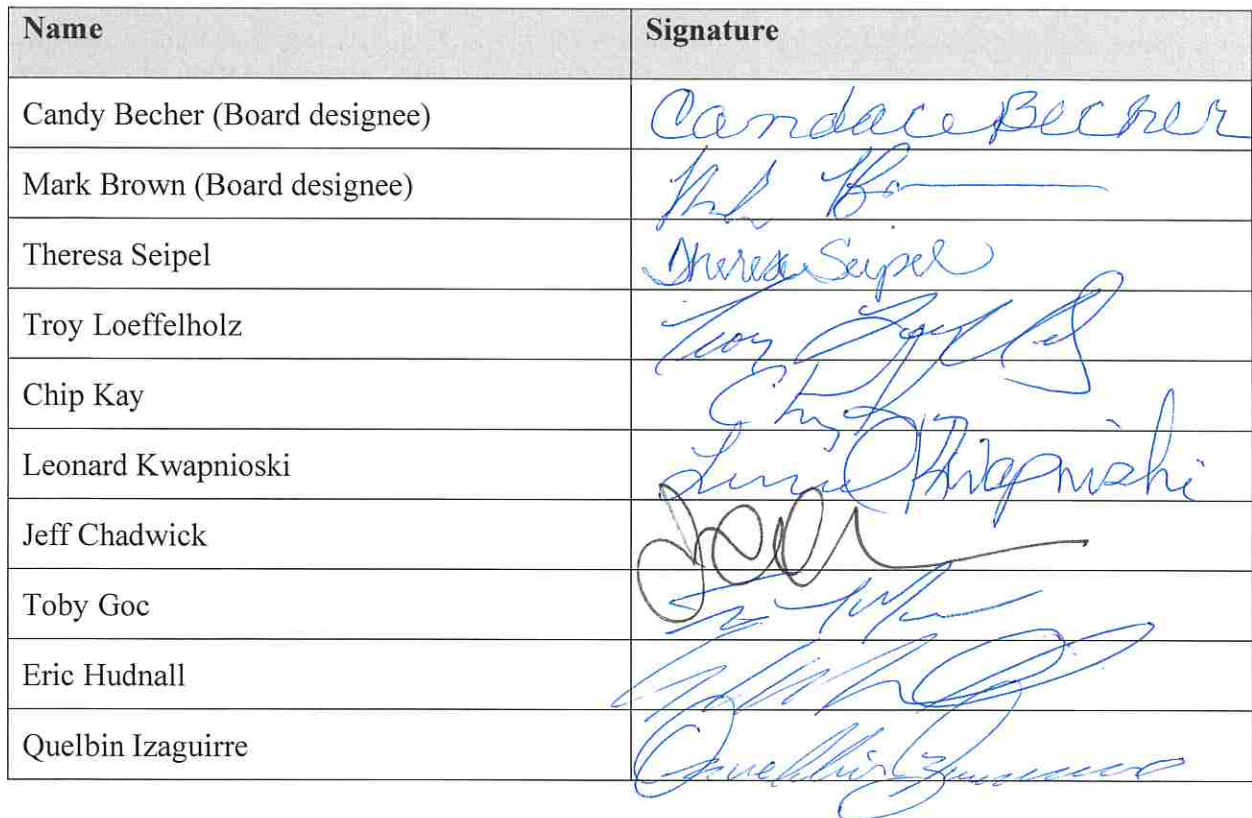 Name Signature
Candy Becher (Board designee) Candace Becher
Mark Brown (Board designee)
Theresa Seipel Theresa Seipel
Troy Loeffelholz Troy
Chip Kay Chip
Leonard Kwapnioski Kwapnioski
Jeff Chadwick
Toby Goc
Eric Hudnall
Quelbin Izaguirre